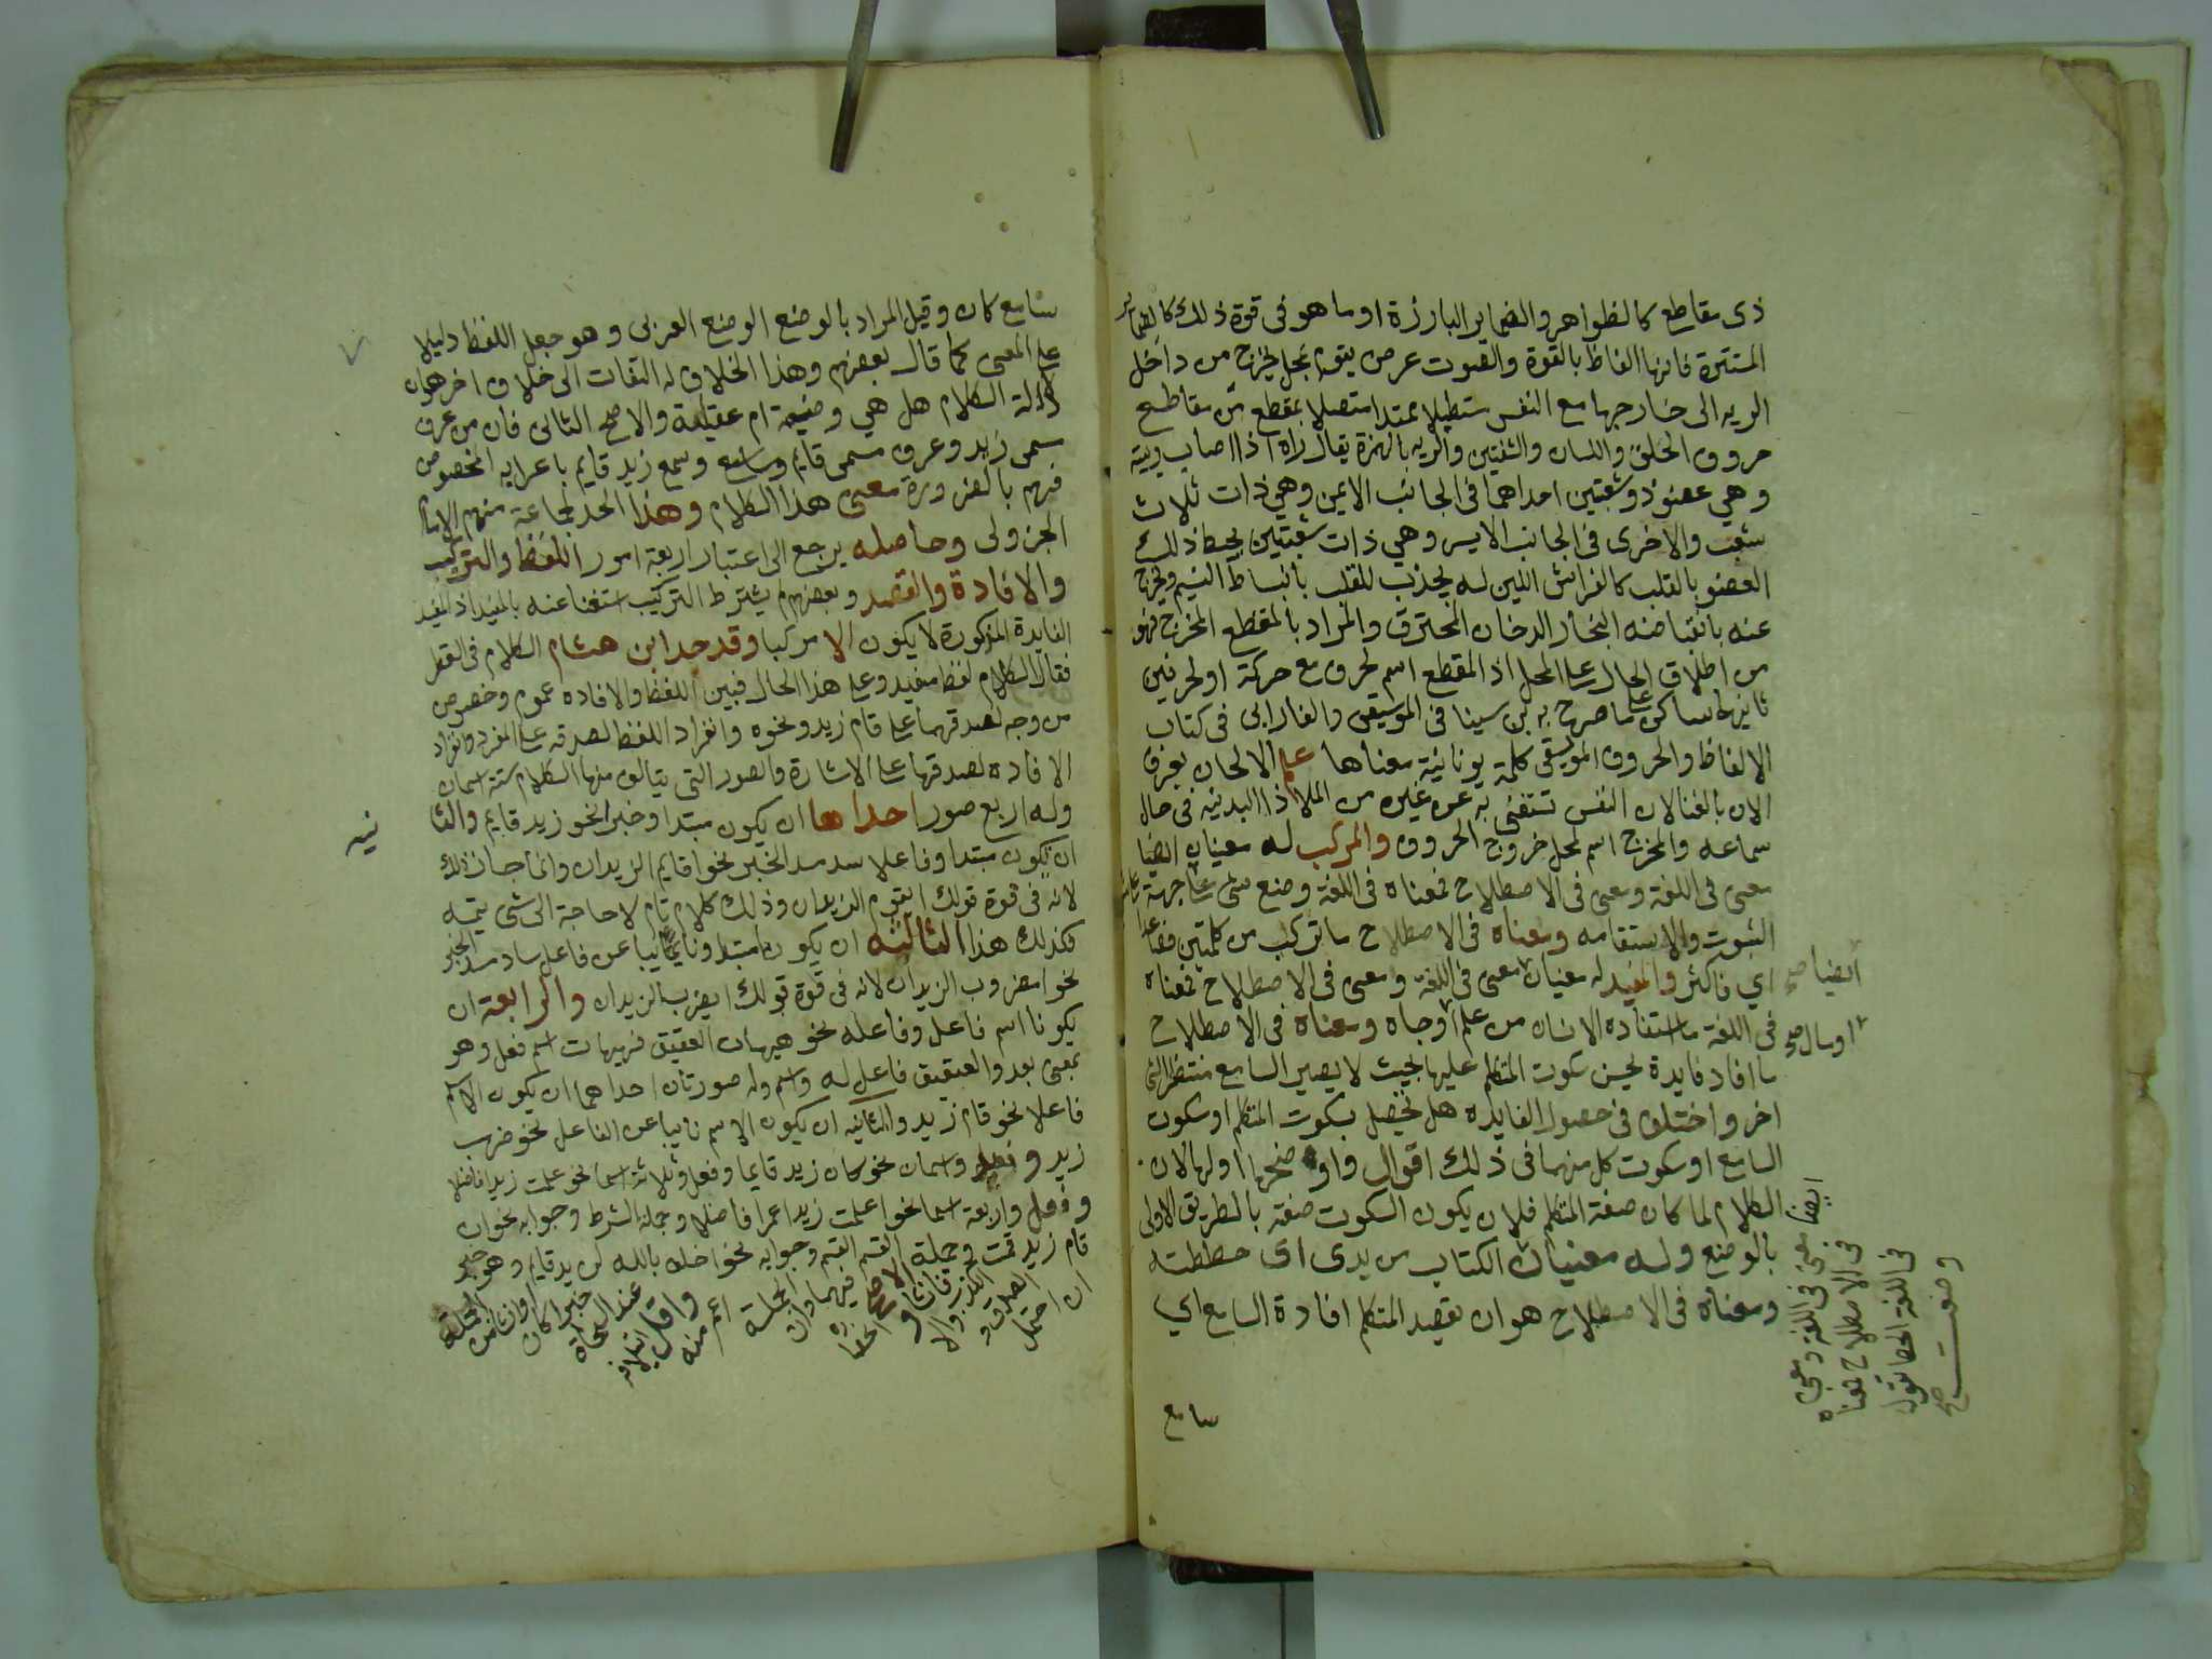 ذى مقاطع كالظواهر والضماير البارزة او ما هو فى قوة ذلك كالضماير
المستترة فانها الفاظ بالقوة والصوت عرض يقوم بمحل يخرج من داخل
الريه الى خارجها مع النفس مستطيلا ممتدا متصلا بمقطع من مقاطع
حروف الحلق واللسان والشفتين والريه بالهمزة يقال راه اذا اصاب رييته
وهي عضو ذو شعبتين احداهما فى الجانب الايمن وهي ذات ثلاث
شعب والاخرى فى الجانب الايسر وهي ذات شعبتين يحيط ذلك
العضو بالقلب كالفراش اللين له يجذب للقلب بانبساط النسيم ويخرج
عنه بانقباضه البخار الدخان المحترق والمراد بالمقطع المخرج فهو
من اطلاق الحال على المحل اذ المقطع اسم لحرف مع حركة او لحرفين
ثانيهما ساكن على ما صرح به بن سينا فى الموسيقى والفارابى فى كتاب
الالفاظ والحروف الموسيقى كلمة يونانية معناها علم الالحان يعرف
الان بالغنا لان النفس تستغنى به عن غيره من الملاذ البدنيه فى حال
سماعه والمخرج اسم لمحل خروج الحروف والمركب له معنيان ايضا
معنى فى اللغة ومعنى فى الاصطلاح فمعناه فى اللغة وضع شى على جهة
الثبوت والاستقامه ومعناه فى الاصطلاح ما تركب من كلمتين فصاعدا
اي فاكثر والمفيد له معنيان معنى فى اللغة ومعنى فى الاصطلاح فمعناه
ايضا صح
فى اللغة ما استفاده الانسان من علم او جاه ومعناه فى الاصطلاح
او مال صح
ما افاد فايدة يحسن سكوت المتكلم عليها بحيث لا يصير السامع منتظرا لشى
اخر واختلف فى حصول الفايده هل تحصل بسكوت المتكلم او سكوت
السامع او سكوت كل منهما فى ذلك اقوال واوضحها اولها لان
الكلام لما كان صفة المتكلم فلان يكون السكوت صفته بالطريق الاولى
بالوضع وله معنيان الكتاب من يدى اى حططته
ومعناه فى الاصطلاح هو ان يقصد المتكلم افادة السامع اي
ايضا
معنى فى اللغة ومعنى
فى الاصطلاح فمعناه
فى اللغة الحط تقول
وضعت صح
سامع
سامع كان وقيل المراد بالوضع الوضع العربى وهو جعل اللفظ دليلا
على المعنى كما قال بعضهم وهذا الخلاف له التفات الى خلاف اخر هو ان
دلالة الكلام هل هي وضعية ام عقلية والاصح الثانى فان من عرف
مسمى زيد وعرف مسمى قايم وسمع زيد قايم باعرابه المخصوص
فهم بالضرورة معنى هذا الكلام وهذا الحد لجماعة منهم الامام
الجزولى وحاصله يرجع الى اعتبار اربعة امور اللفظ والتركيب
والافادة والقصد وبعضهم لم يشترط التركيب استغنا عنه بالمفيد اذ المفيد
الفايدة المذكورة لا يكون الا مركبا وقد حد ابن هشام الكلام فى القطر
فقال الكلام لفظ مفيد وعلى هذا الحال فبين اللفظ والافاده عموم وخصوص
من وجه لصدقهما على قام زيد ونحوه وانفراد اللفظ لصدقه على المفرد وانفراد
الافاده لصدقها على الاشارة والصور التى يتالف منها الكلام ستة اسمان
وله اربع صور احداها ان يكون مبتدا وخبر نحو زيد قايم والثا
نيه
ان يكون مبتدا وفاعلا سد مسد الخبر نحو اقايم الزيدان وانما جاز ذلك
لانه فى قوة قولك ايقوم الزيدان وذلك كلام تام لا حاجة الى شى يتمه
فكذلك هذا الثالثه ان يكون مبتدا ونايبا عن فاعل ساد مسد الخبر
نحو امضروب الزيدان لانه فى قوة قولك ايضرب الزيدان والرابعة ان
يكونا اسم فاعل وفاعله نحو هيهات العقيق فهيهات اسم فعل وهو
بمعنى بعد والعقيق فاعل له واسم وله صورتان احداهما ان يكون الاسم
فاعلا نحو قام زيد والثانيه ان يكون الاسم نايبا عن الفاعل نحو ضرب
زيد وفعل واسمان نحو كان زيد قايما وفعل وثلاثة اسما نحو علمت زيدا فاضلا
وفعل واربعة اسما نحو اعلمت زيدا عمرا فاضلا وجملة الشرط وجوابه نحو ان
قام زيد قمت وجملة القسم وجوابه نحو احلف بالله لزيد قايم وهو خبر
ان احتمل
الصدق و
الكذب والا
فانشا و
الاصح
انحصار
فيهما وان
الجملة
اعم منه
واقل ايتلافه
عند النحاة
خبرا كان
او انشا من
الجملة